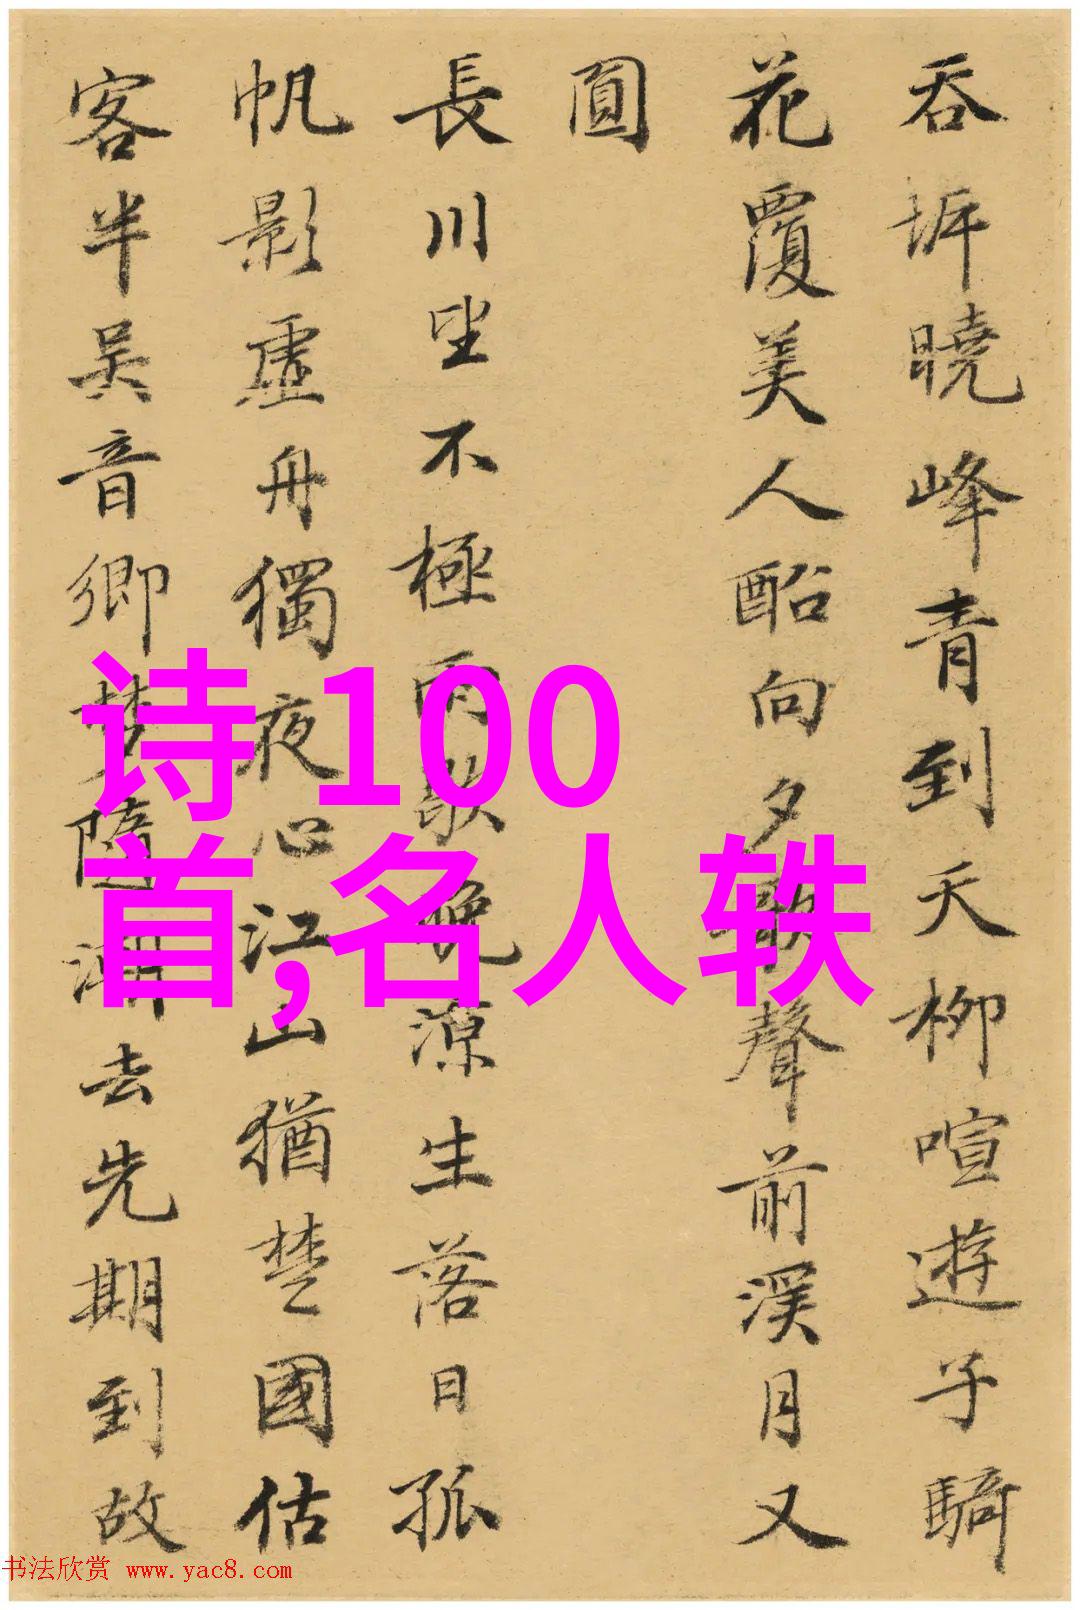 吞坼曉峰青到天柳喧遊子騎
花覆美人酩向夕歌聲前溪月又
圓
長川坐不極雨歇晚涼生落日孤
帆影虛舟獨夜心江山猶楚國估
客半吳音鄉夢隨潮去先期到故
诗100
首,名人轶
书法欣赏 www.yac8.com